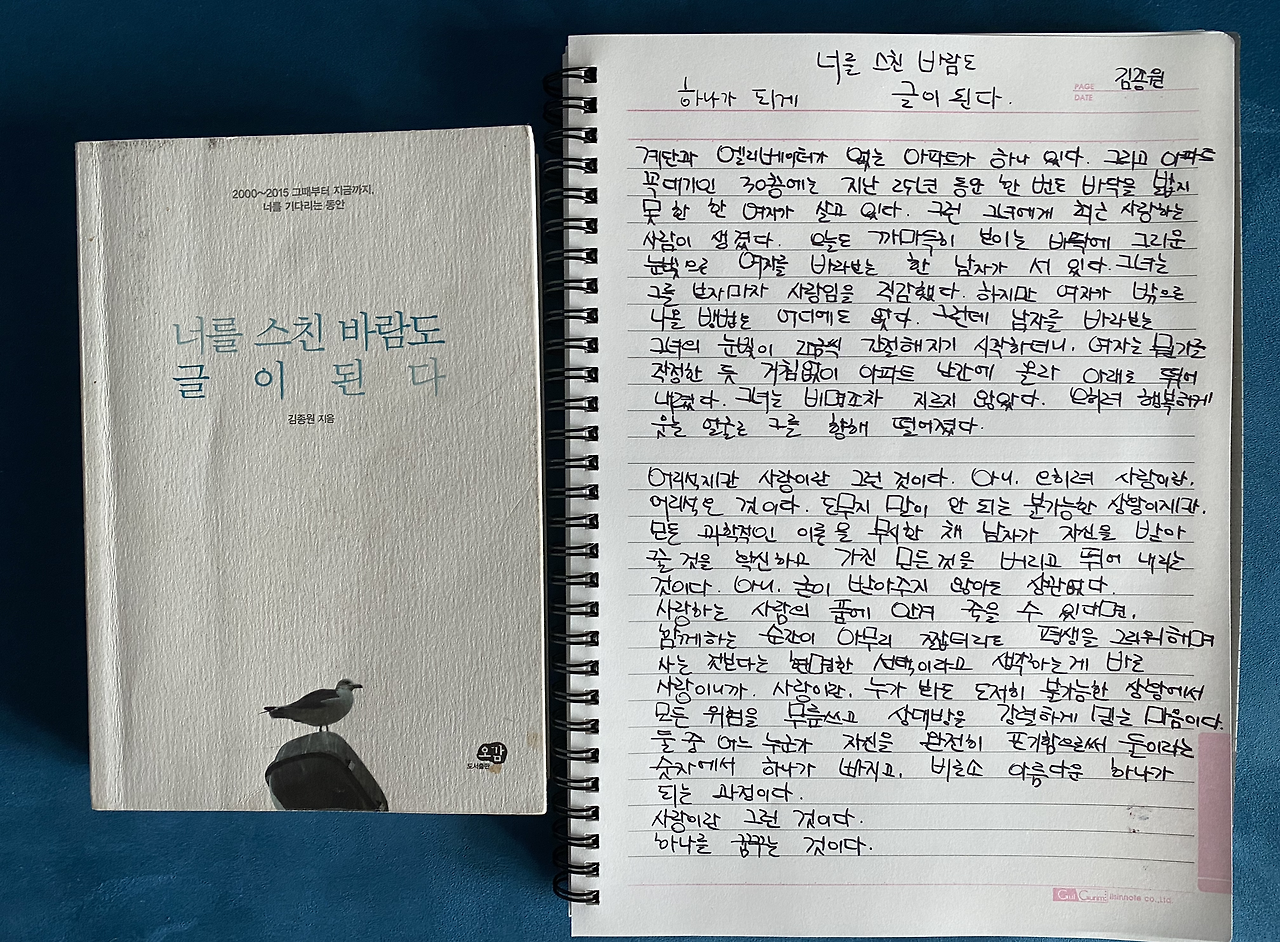 2000~2015 그때부터 지금까지,
너를 기다리는 동안
너를 스친 바람도
글 이 된 다
김종원 지음
오감
도서출판
너를 스친 바람도
김종원
하나가 되게 글이 된다.
PAGE
DATE
계단과 엘리베이터가 없는 아파트가 하나 있다. 그리고 아파트
꼭대기인 30층에는 지난 25년 동안 한 번도 바닥을 밟지
못 한 한 여자가 살고 있다. 그런 그녀에게 최근 사랑하는
사람이 생겼다. 오늘도 까마득히 보이는 바닥에 그리운
눈빛으로 여자를 바라보는 한 남자가 서 있다. 그녀는
그를 보자마자 사랑임을 직감했다. 하지만 여자가 밖으로
나올 방법은 어디에도 없다. 그런데 남자를 바라보는
그녀의 눈빛이 조금씩 간절해지기 시작하더니, 여자는 죽기를
작정한 듯 거침없이 아파트 난간에 올라 아래로 뛰어
내렸다. 그녀는 비명조차 지르지 않았다. 오히려 행복하게
웃는 얼굴로 그를 향해 떨어졌다.
어리석지만 사랑이란 그런 것이다. 아니, 오히려 사랑이란,
어리석은 것이다. 도무지 말이 안 되는 불가능한 상황이지만,
모든 과학적인 이론을 무시한 채 남자가 자신을 받아
줄 것을 확신하고 가진 모든 것을 버리고 뛰어 내리는
것이다. 아니, 굳이 받아주지 않아도 상관없다.
사랑하는 사람의 품에 안겨 죽을 수 있다면,
함께하는 순간이 아무리 짧더라도 평생을 그리워하며
사는 것보다는 현명한 선택이라고 생각하는 게 바로
사랑이니까. 사랑이란, 누가 봐도 도저히 불가능한 상황에서
모든 위험을 무릅쓰고 상대방을 강력하게 믿는 마음이다.
둘 중 어느 누군가 자신을 완전히 포기함으로써 둘이라는
숫자에서 하나가 빠지고, 비로소 아름다운 하나가
되는 과정이다.
사랑이란 그런 것이다.
하나를 꿈꾸는 것이다.
Gul Gurim